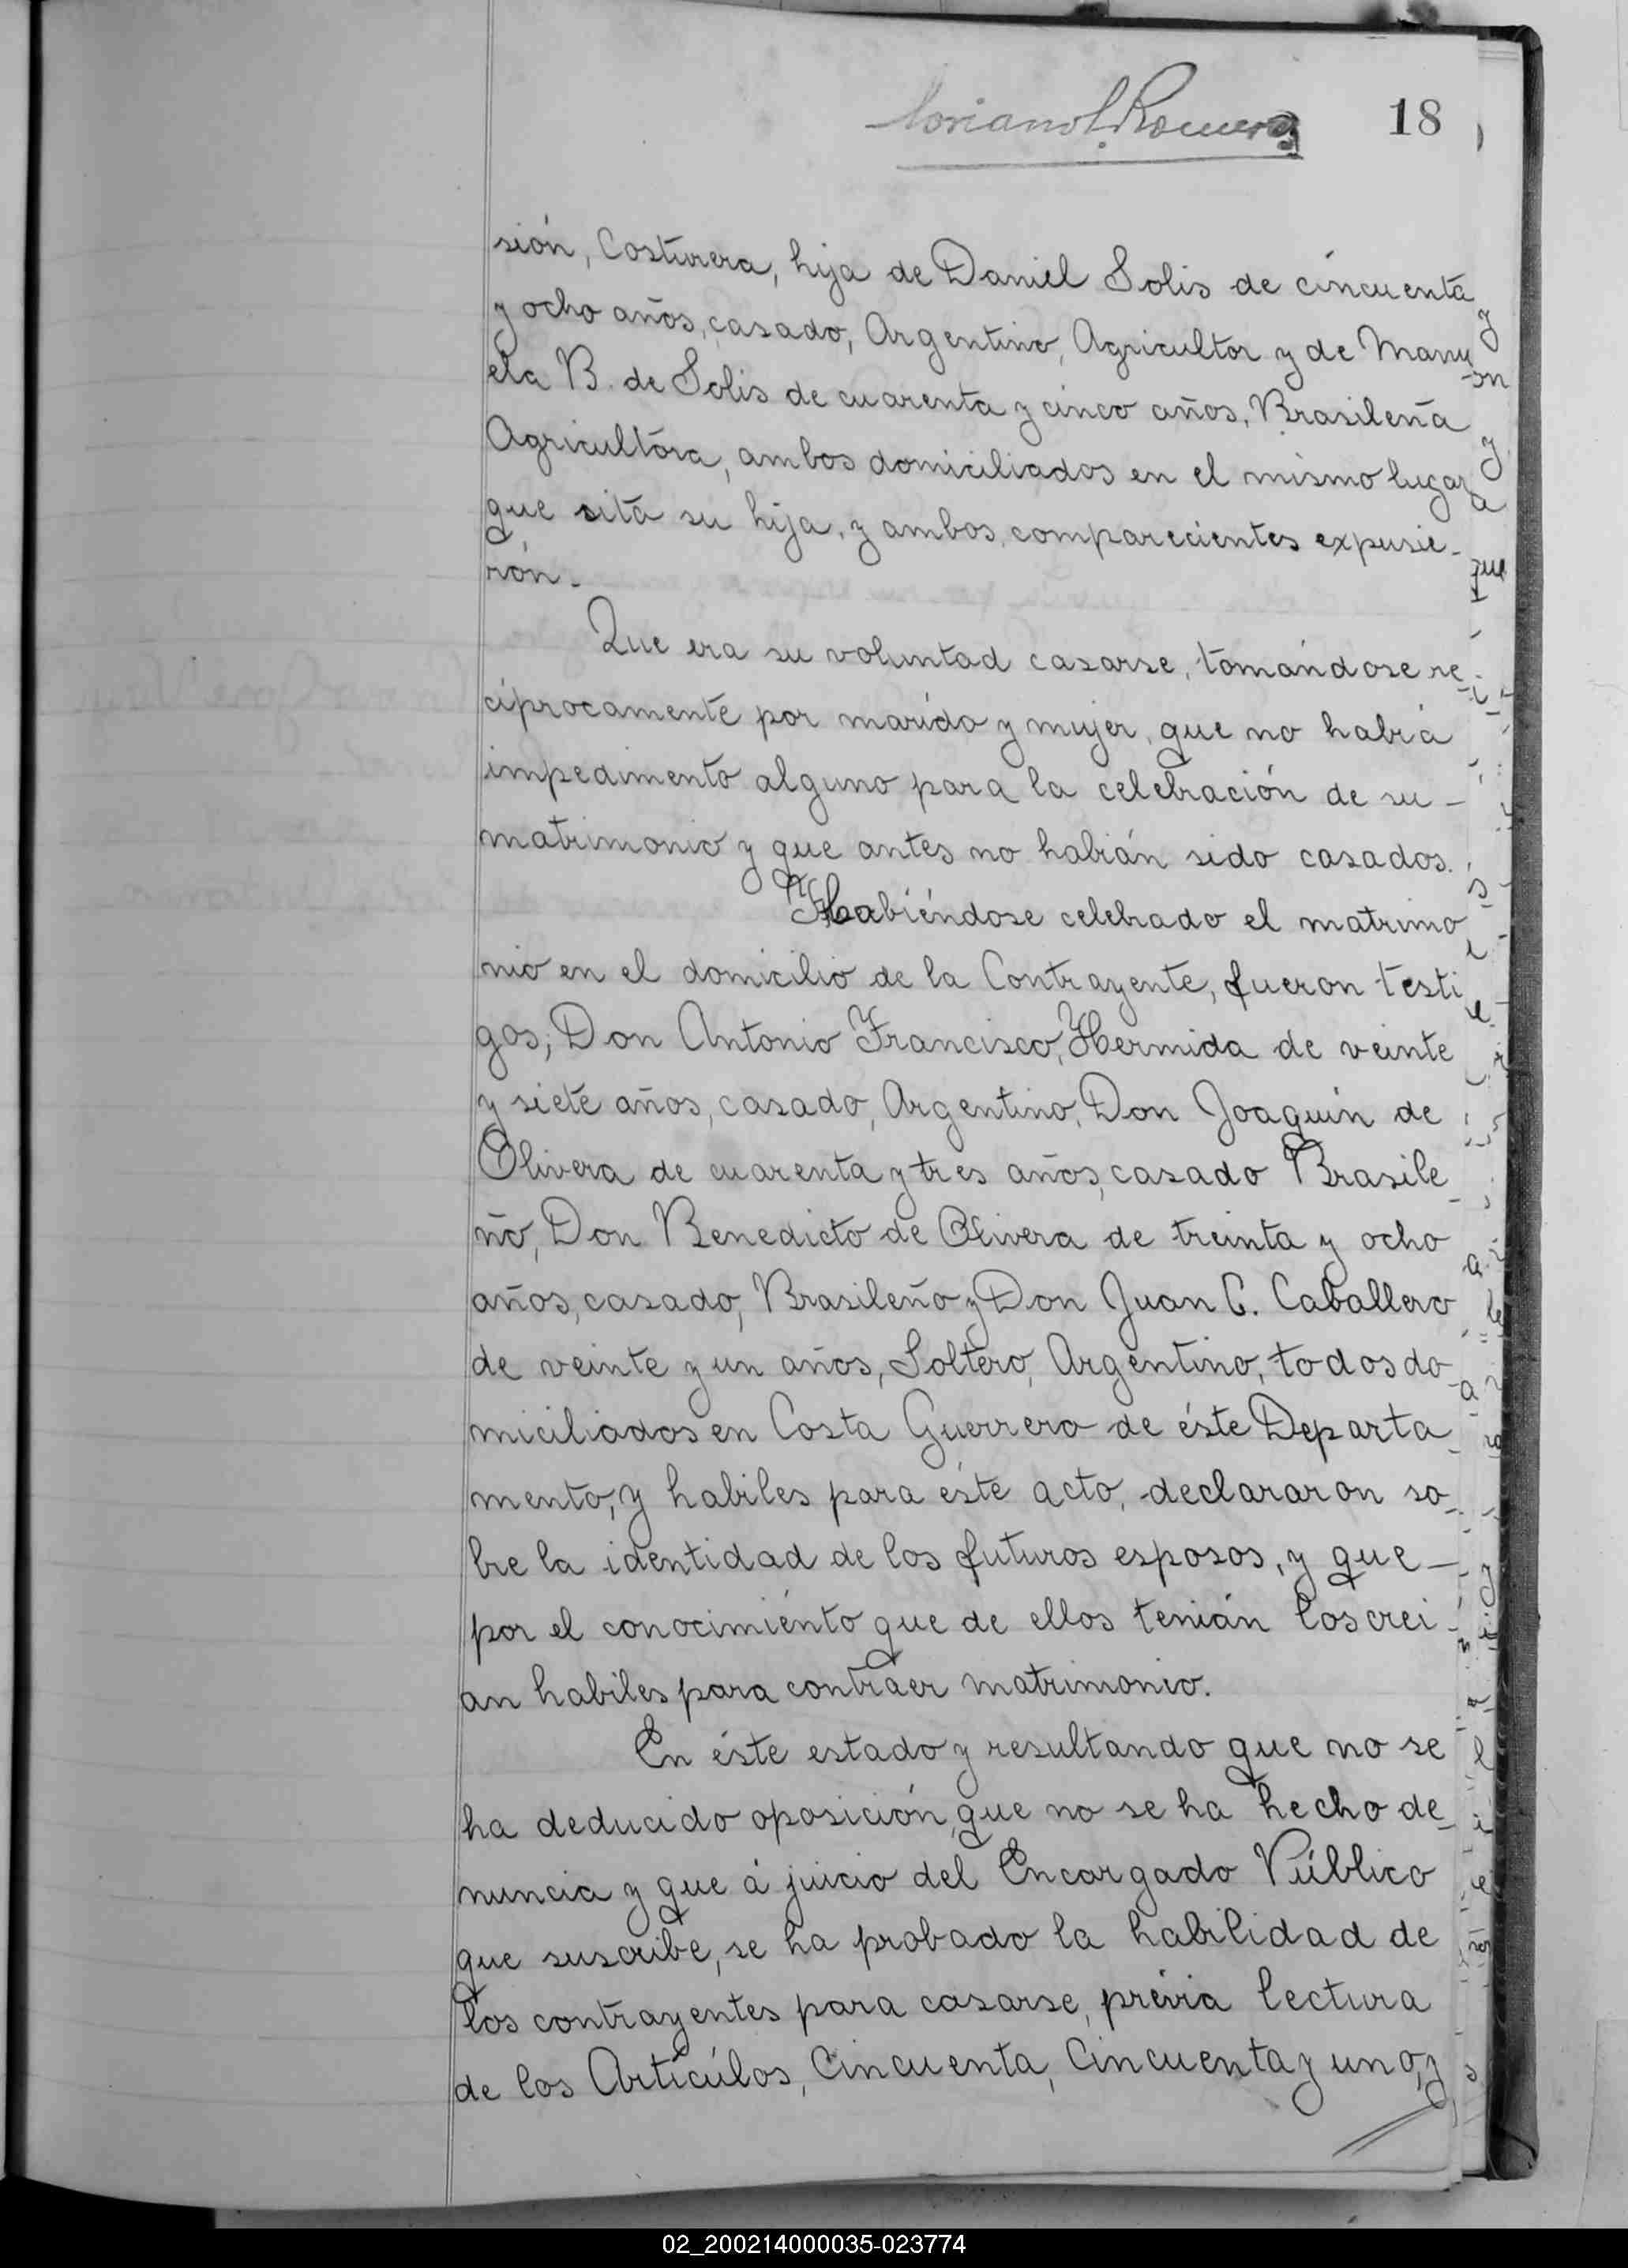 18
sión, Costurera, hija de Daniel Solis de cincuenta
y ocho años, casado, Argentino, Agricultor y de Manu
ela B. de Solis de cuarenta y cinco años, Brasileña
Agricultóra, ambos domiciliados en el mismo lugar
que sitá su hija, y ambos, comparecientes expusie-
rón.
Que era su voluntad casarse, tomándose re-
ciprocamente por marido y mujer, que no habiá
impedimento alguno para la celebración de su-
matrimonio y que antes no habián sido casados.
Habiéndose celebrado el matrimo
nio en el domicilio de la Contrayente, fueron testi
gos; Don Antonio Francisco, Hermida de veinte
y siete años, casado, Argentino, Don Joaquin de
Olivera de cuarenta y tres años, casado Brasile
ño, Don Benedicto de Olivera de treinta y ocho
años, casado, Brasileño y Don Juan C. Caballero
de veinte y un años, Soltero, Argentino, todos do
miciliados en Costa Guerrero de éste Departa
mento, y habiles para éste acto, declararon so
bre la identidad de los futuros esposos, y que-
por el conocimiénto que de ellos tenián los crei-
an habiles para contraer matrimonio.
En éste estado y resultando que no se
ha deducido oposición, que no se ha hecho de
nuncia y que á juicio del Encargado Público
que suscribe, se ha probado la habilidad de
los contrayentes para casarse, prévia lectura
de los Artícúlos, Cincuenta, Cincuenta y uno, y
02_200214000035-023774